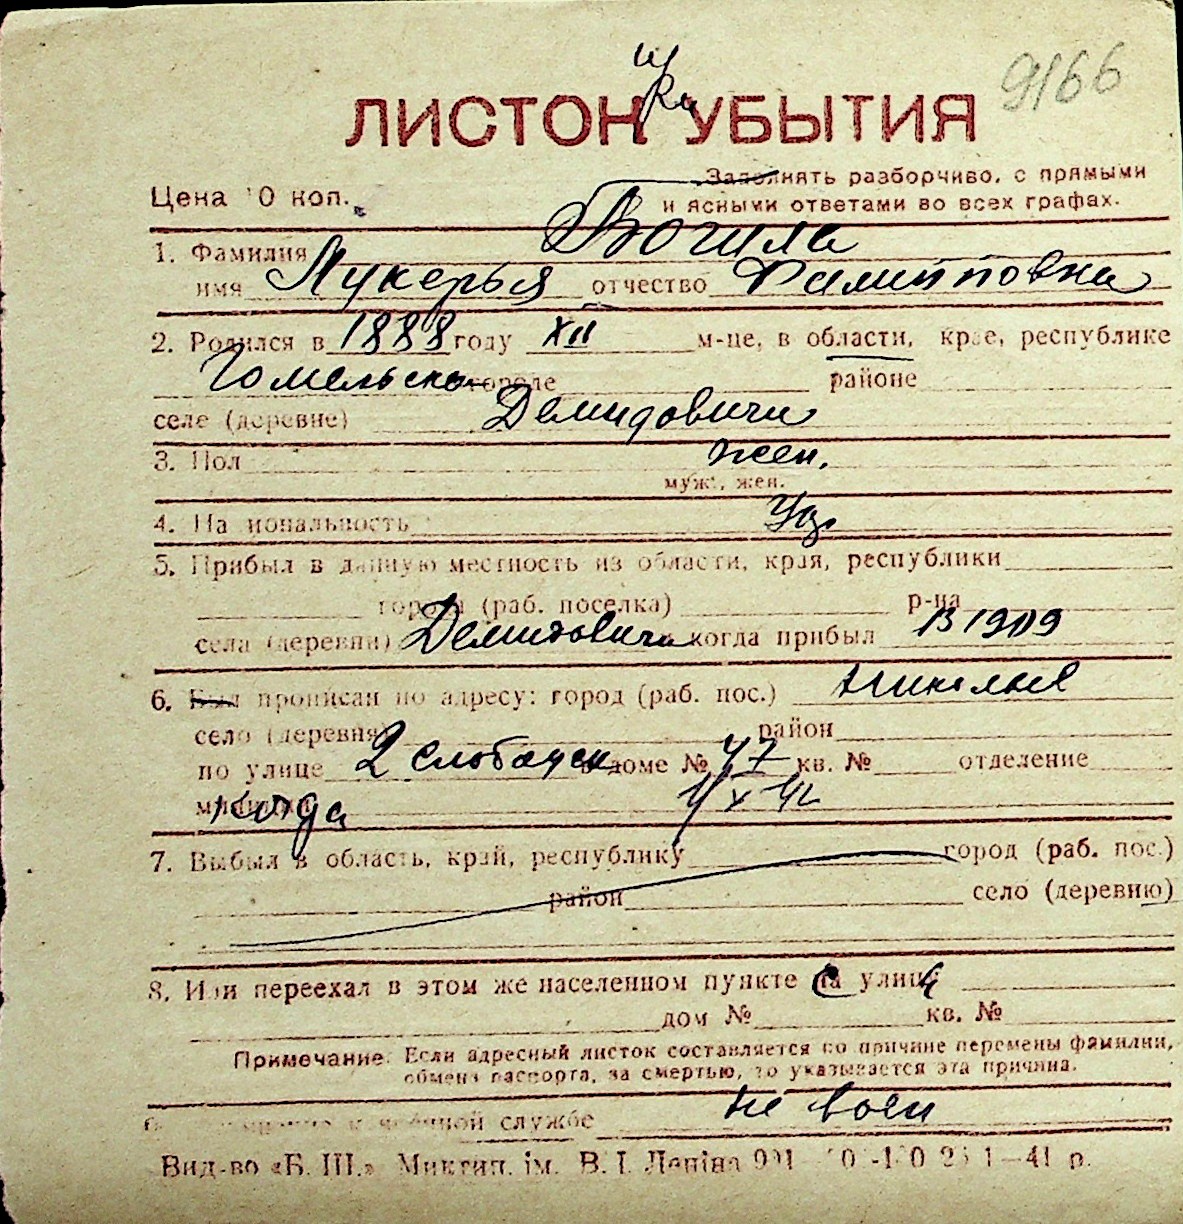 9166
ЛИСТОК УБЫТИЯ
Цена 10 коп.
Заполнять разборчиво, с прямыми
и ясными ответами во всех графах.
1. Фамилия Вогила
имя Лукерья отчество Филипповна
2. Родился в 1888 году XII м-це, в области, крае, республике
Гомельско городе районе
селе (деревне) Демидовичи
3. Пол жен.
муж., жен.
4. Национальность
5. Прибыл в данную местность из области, края, республики
города (раб. поселка) р-на
села (деревни) Демидовичи когда прибыл В 1909
6. Был прописан по адресу: город (раб. пос.) Николаев
село (деревня) район
по улице 2 слободск в доме № 47 кв. № отделение
милиции когда
7. Выбыл в область, край, республику город (раб. пос.)
район село (деревню)
8. Или переехал в этом же населенном пункте на улицу
дом № кв. №
Примечание: Если адресный листок составляется по причине перемены фамилии,
обмена паспорта, за смертью, то указывается эта причина.
военной службе не воен
Вид-во «Б. Ш.» Миктип. ім. В. І. Леніна 41 р.